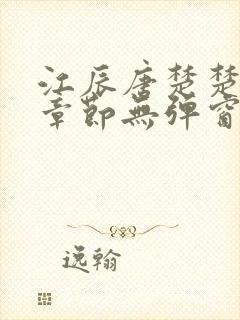 江辰唐楚楚
章節無彈窗
逸翰